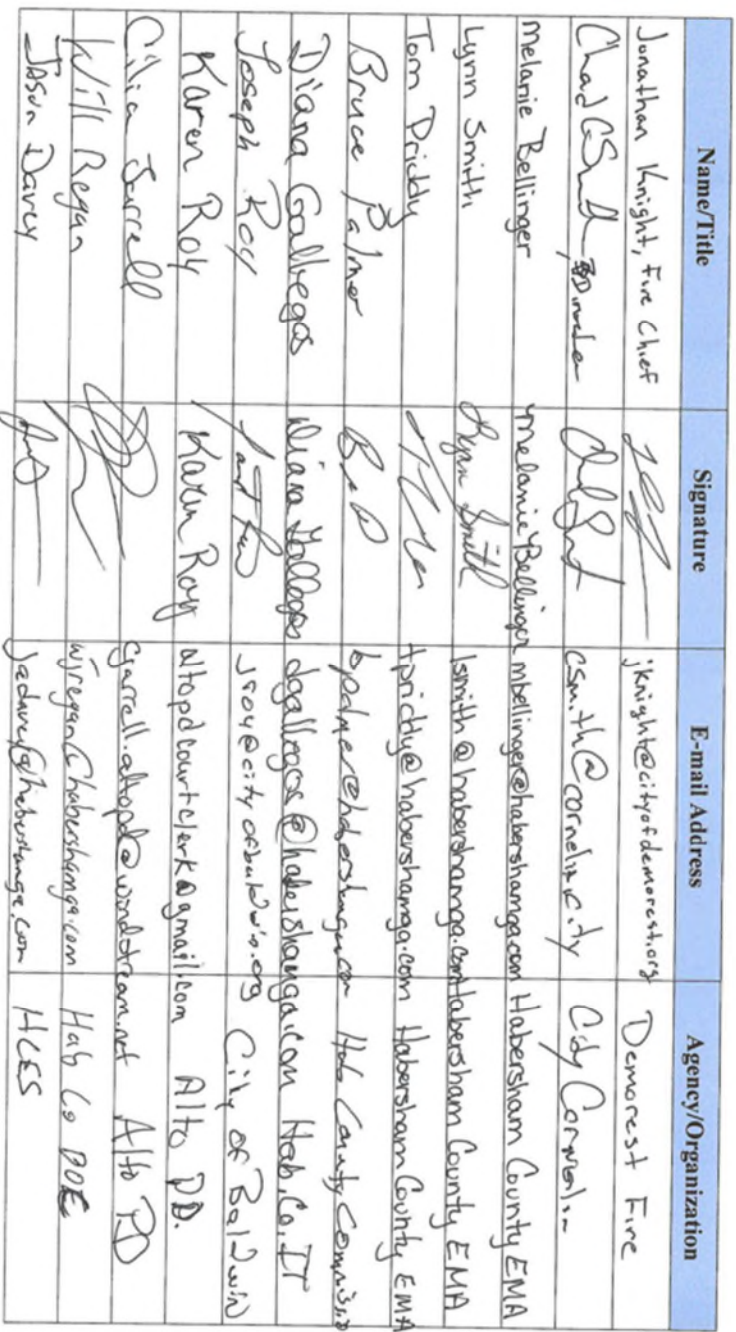 Name/Title Signature E-mail Address Agency/Organization
Jonathan Knight, Fire Chief jknight@cityofdemorest.org Demorest Fire
Chad Smith csmith@cornelia.city City Cornelia
Melanie Bellinger Melanie Bellinger mbellinger@habershamga.com Habersham County EMA
Lynn Smith Lynn Smith lsmith@habershamga.com Habersham County EMA
Tom Priddy tpriddy@habershamga.com Habersham County EMA
Bruce Palmer bpalmer@habershamga.com Hab County Commission
Diana Gallegos Diana Gallegos dgallegos@habershamga.com Hab. Co. IT
Joseph Roy jroy@cityofbaldwin.org City of Baldwin
Karen Roy Karen Roy altopdcourtclerk@gmail.com Alto PD.
Cilia Jarrell cjarrell.altopd@windstream.net Alto PD
Will Regan wjregan@habershamga.com Hab Co BOE
Jason Davey jadavey@habershamga.com HCES